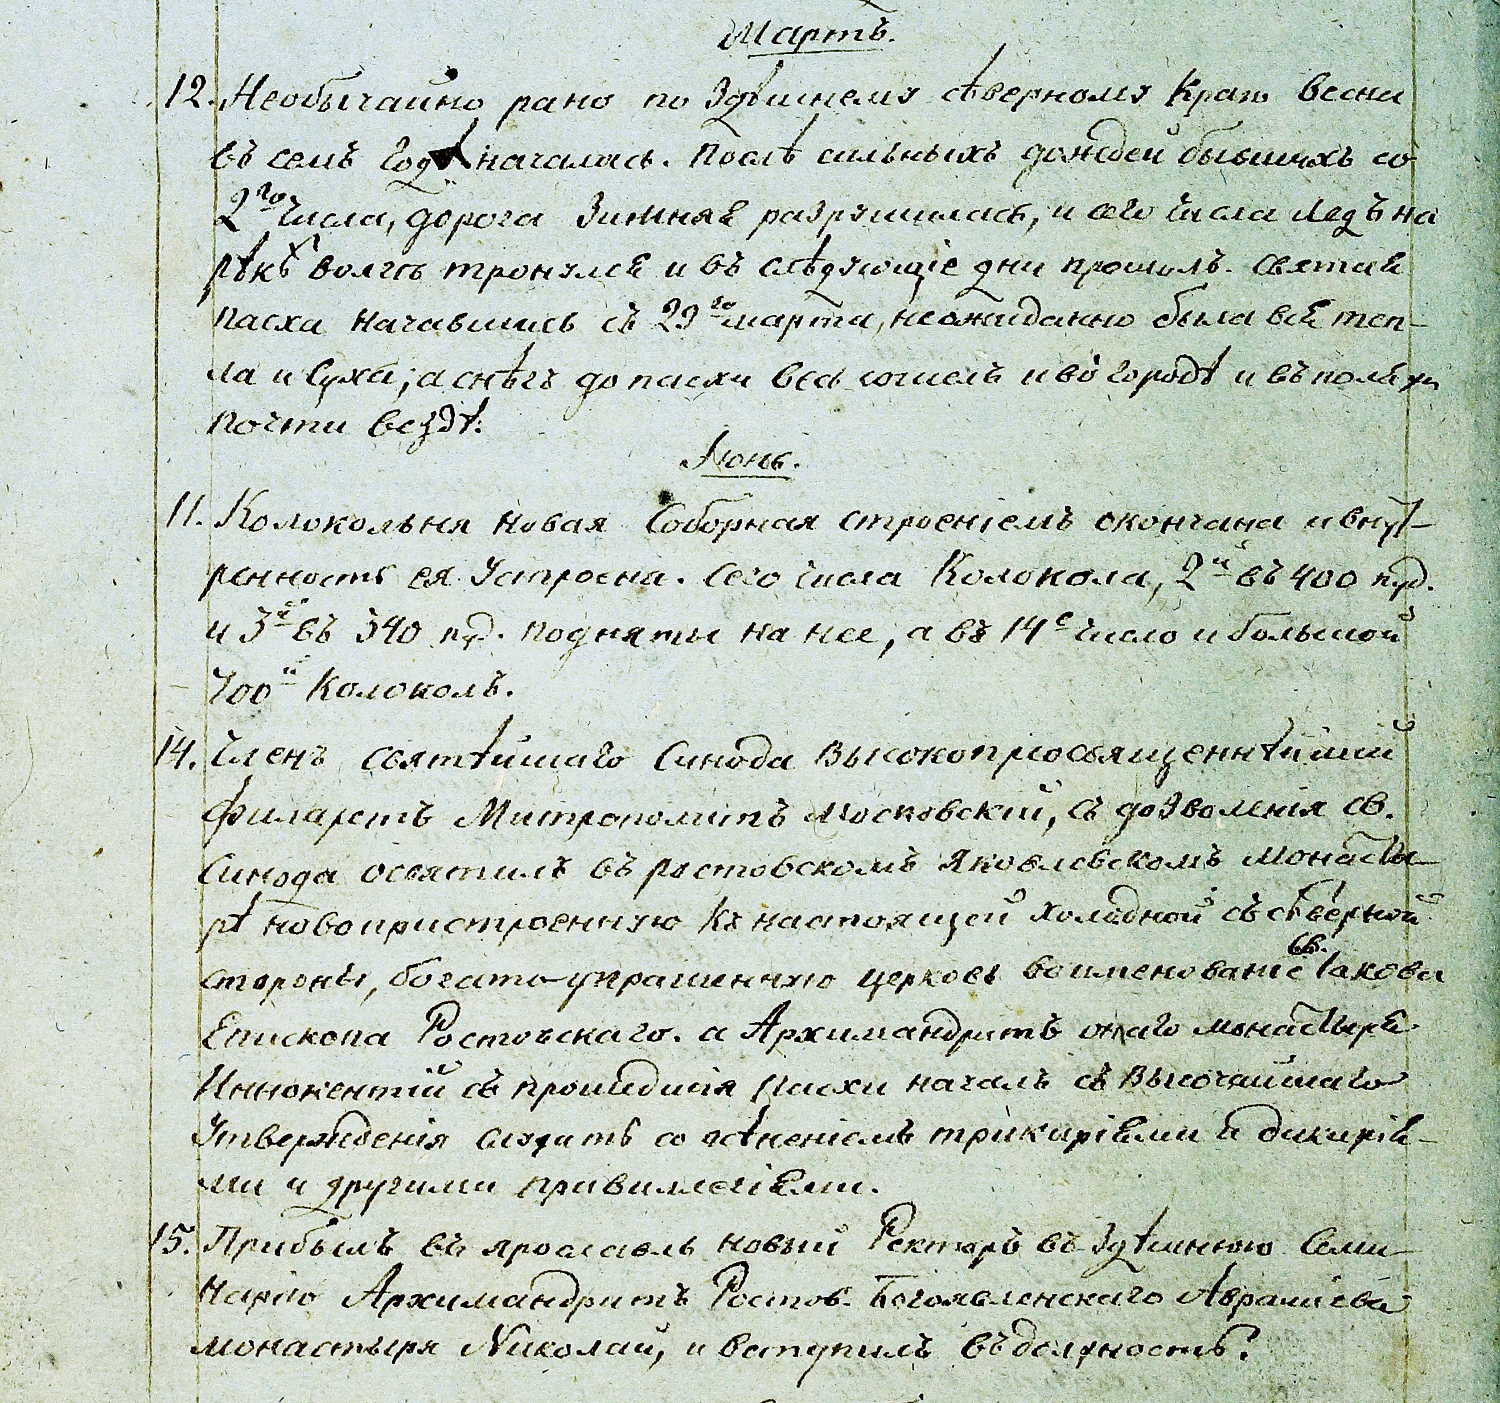 Мартъ.
12. Необычайно рано по здѣшнему сѣверному краю весна
въ семъ годѣ началась. Послѣ сильныхъ дождей бывшихъ со
2го числа, дорога зимняя разрушилась, и сего числа ледъ на
рѣкѣ Волгѣ тронулся и въ слѣдующіе дни прошолъ. Святая
пасха начавшись съ 29го марта, неожиданно была вся теп-
ла и суха; а снѣгъ до пасхи весь сошелъ и во городѣ и въ поляхъ
почти вездѣ.
Іюнь.
11. Колокольня новая Соборная строеніемъ окончана и внут-
ренность ея устроена. Сего числа Колокола, 2й въ 400 пуд.
и 3й въ 340 пуд. подняты на нее, а въ 14е число и большой
700й колоколъ.
14. Членъ святѣйшаго Синода высокопреосвященнѣйшій
Филаретъ Митрополитъ Московскій, съ дозволенія св.
Синода освятилъ въ ростовскомъ Яковлевскомъ монасты-
рѣ новопристроенную къ настоящей холодной съ сѣверной
стороны, богато-украшенную церковь во именованіе св. Іакова
Епископа Ростовскаго. а Архимандритъ онаго монастыря
Иннокентій съ прошедшія пасхи началъ съ высочайшаго
утвержденія служить со осѣненіемъ трикиріями и дикирія-
ми и другими привиллегіями.
15. Прибылъ въ ярославль новый Ректоръ въ здѣшнюю Семи-
нарію Архимандритъ Ростов. Богоявленскаго Авраміева
монастыря Николай, и вступилъ въ должность.